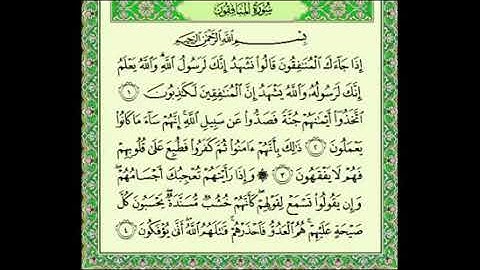 سُورَةُ المُنَافِقُونَ
بِسْمِ اللَّهِ الرَّحْمَٰنِ الرَّحِيمِ
إِذَا جَآءَكَ ٱلْمُنَٰفِقُونَ قَالُوا۟ نَشْهَدُ إِنَّكَ لَرَسُولُ ٱللَّهِ ۗ وَٱللَّهُ يَعْلَمُ
إِنَّكَ لَرَسُولُهُۥ وَٱللَّهُ يَشْهَدُ إِنَّ ٱلْمُنَٰفِقِينَ لَكَٰذِبُونَ ١
ٱتَّخَذُوٓا۟ أَيْمَٰنَهُمْ جُنَّةً فَصَدُّوا۟ عَن سَبِيلِ ٱللَّهِ ۚ إِنَّهُمْ سَآءَ مَا كَانُوا۟
يَعْمَلُونَ ٢ ذَٰلِكَ بِأَنَّهُمْ ءَامَنُوا۟ ثُمَّ كَفَرُوا۟ فَطُبِعَ عَلَىٰ قُلُوبِهِمْ
فَهُمْ لَا يَفْقَهُونَ ٣ ۞ وَإِذَا رَأَيْتَهُمْ تُعْجِبُكَ أَجْسَامُهُمْ ۖ
وَإِن يَقُولُوا۟ تَسْمَعْ لِقَوْلِهِمْ ۖ كَأَنَّهُمْ خُشُبٌ مُّسَنَّدَةٌ ۖ يَحْسَبُونَ كُلَّ
صَيْحَةٍ عَلَيْهِمْ ۚ هُمُ ٱلْعَدُوُّ فَٱحْذَرْهُمْ ۚ قَٰتَلَهُمُ ٱللَّهُ ۖ أَنَّىٰ يُؤْفَكُونَ ٤